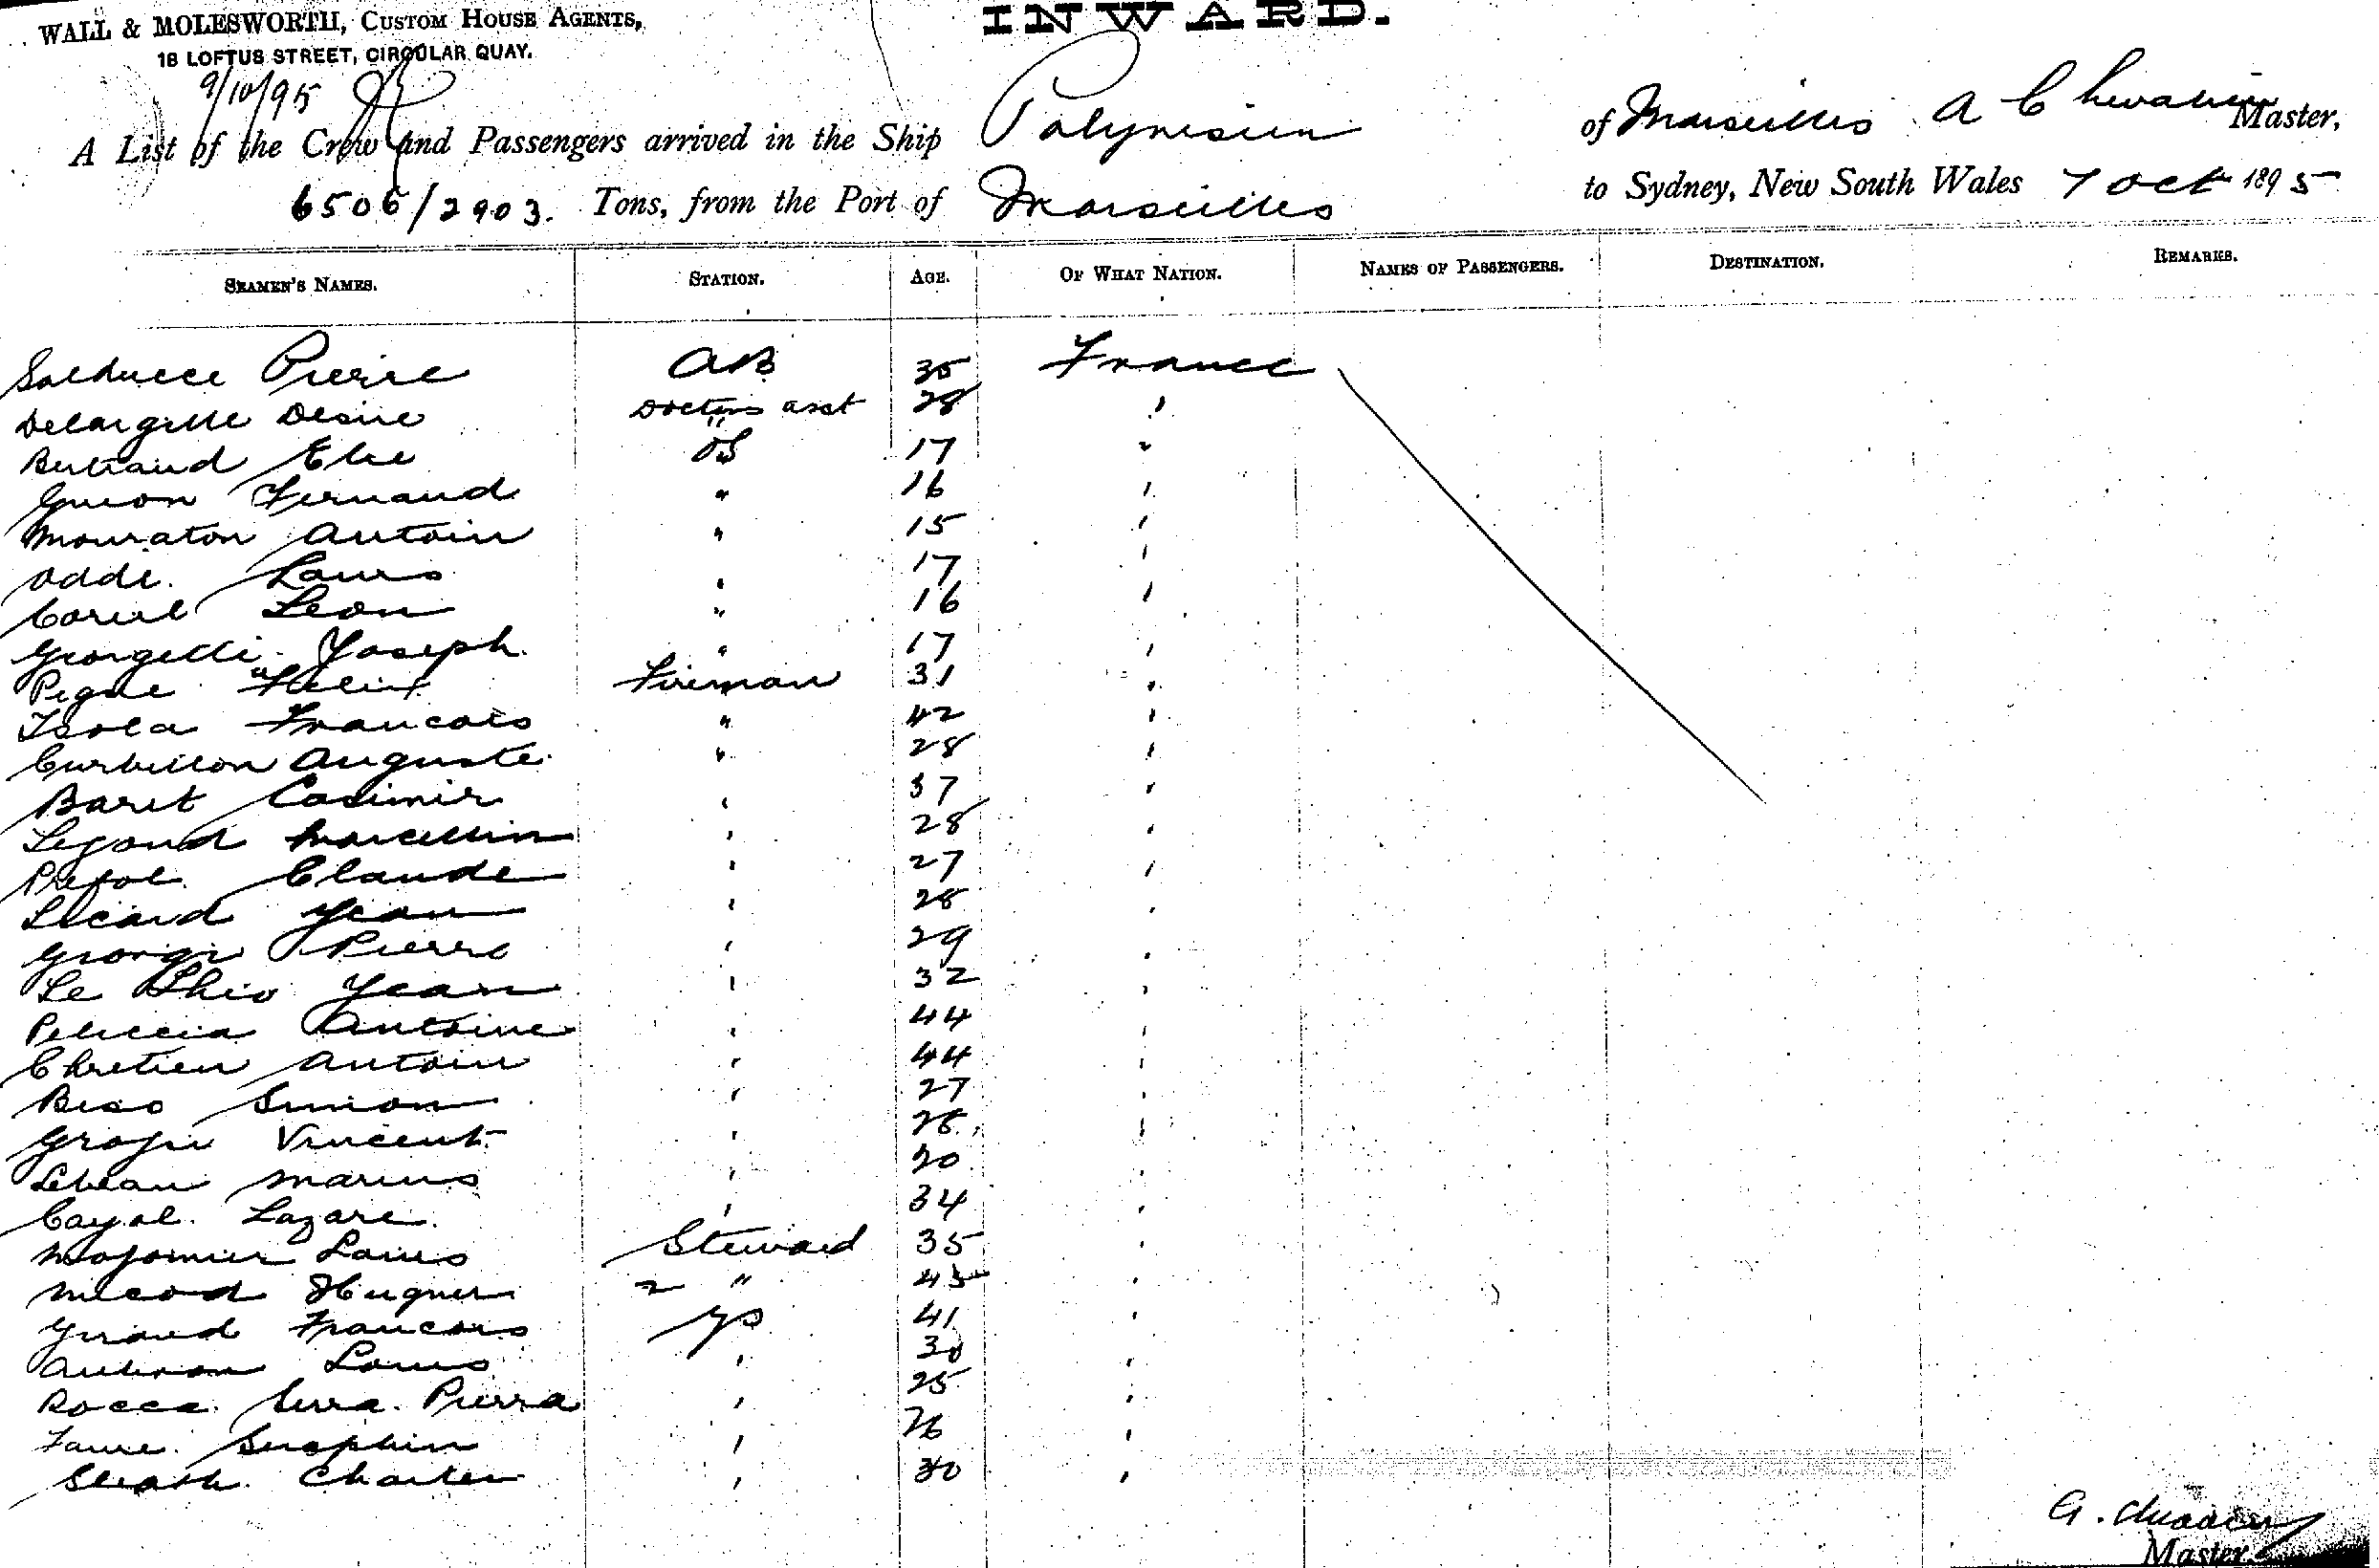 WALL & MOLESWORTH, CUSTOM HOUSE AGENTS,
18 LOFTUS STREET, CIRCULAR QUAY.
INWARD.
9/10/95
A List of the Crew and Passengers arrived in the Ship Polynesien of Marseilles A Chevalier Master,
6506/2903. Tons, from the Port of Marseilles to Sydney, New South Wales 7 Oct 1895
SEAMEN'S NAMES. STATION. AGE. OF WHAT NATION. NAMES OF PASSENGERS. DESTINATION. REMARKS.
Pierre AB 35 France
Desire Doctors asst 28 "
Bertrand Elie OS 17 "
Guion Fernand " 16 "
Mouraton Antoin " 15 "
Odde. Louis " 17 "
Leon " 16 "
Georgetti Joseph. " 17 "
Felix Fireman 31 "
Isola Francois " 42 "
Curbillon Auguste " 28 "
Baret Casimir " 37 "
Marcellin " 28 "
Claude " 27 "
Jean " 28 "
Georgi Pierre " 29 "
Le Jean " 32 "
Peliccia Antoine " 44 "
Chretien Antoin " 44 "
Simon " 27 "
Vincent " "
Lebeau Marius " "
Cayol. Lazare. " 34 "
Louis Steward 35 "
2 " 45 "
Giraud Francois 41 "
Louis " "
Rocca Serra. Pierra " 25 "
Faure. Seraphin " 26 "
Charles " 30 "
Master